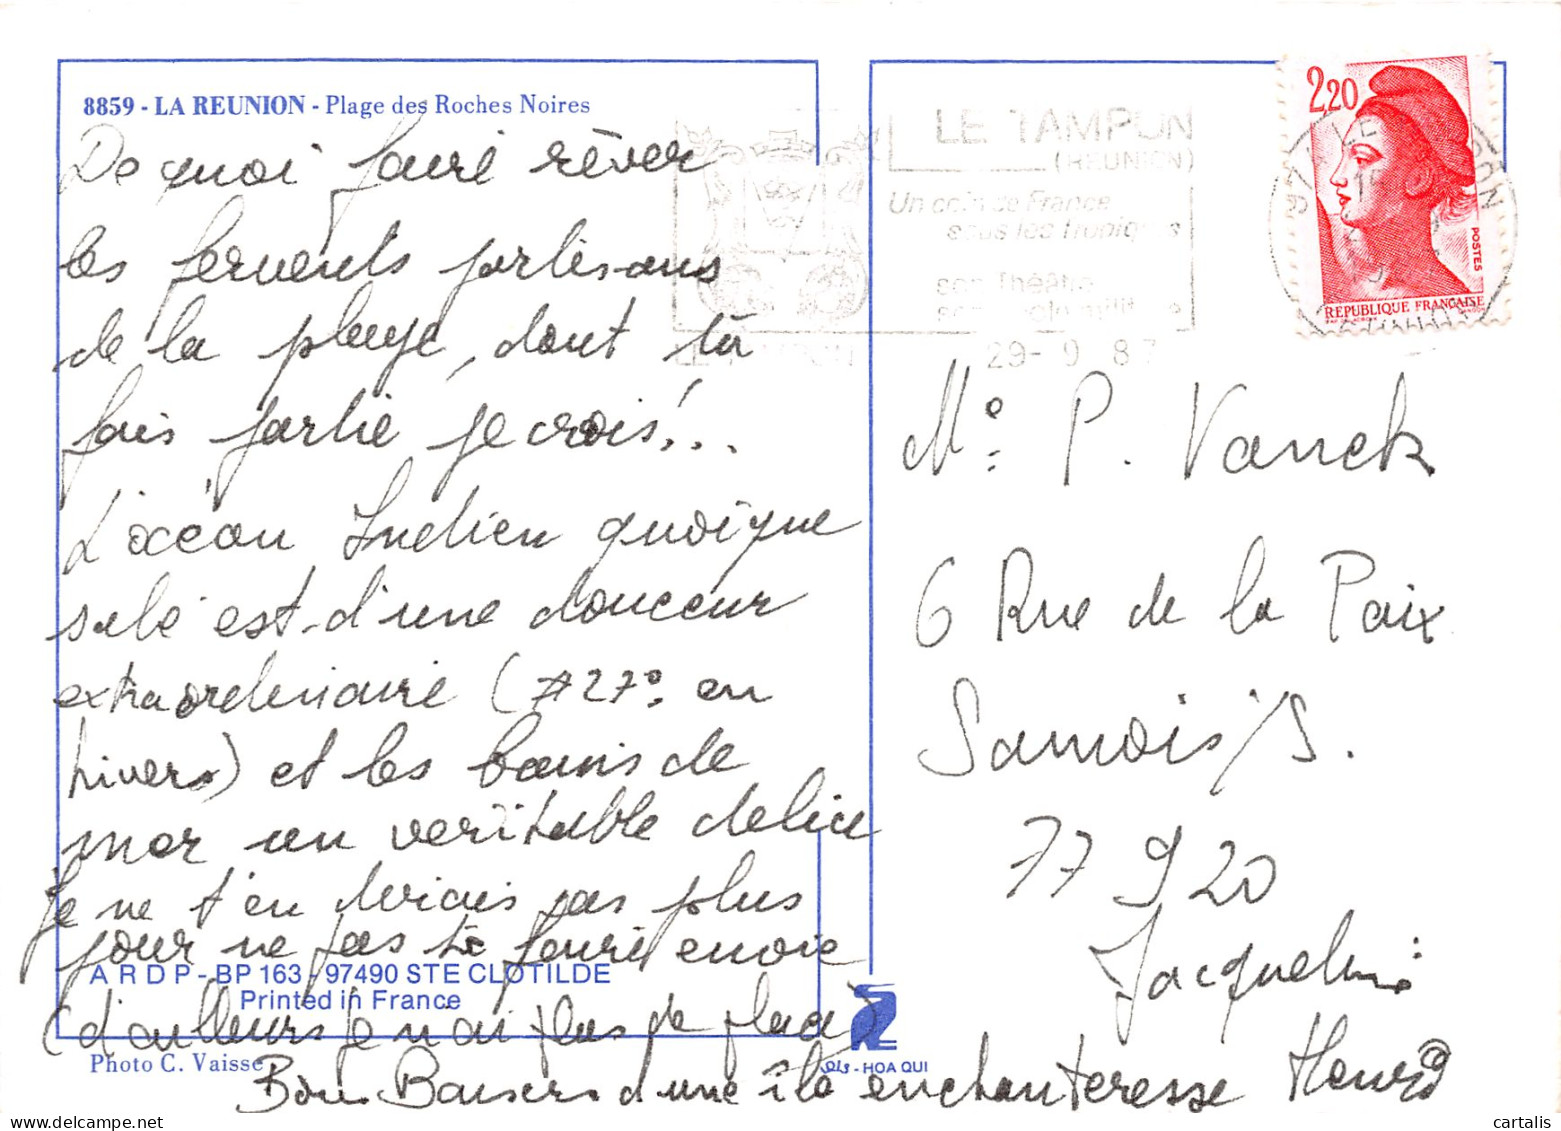 8859 - LA REUNION - Plage des Roches Noires
De quoi faire rêver
les fervents partisans
de la plage, dont tu
fais partie je crois!..
L'océan Indien quoique
salé est d'une douceur
extraordinaire (≠ 27° en
hivers) et les bains de
mer un veritable delice
Je ne t'en dirais pas plus
pour ne pas te faire envie
(d'ailleurs je n'ai plus de place)
Bons Baisers d'une île enchanteresse Henri
Jacqueline
A R D P - BP 163 - 97490 STE CLOTILDE
Printed in France
Photo C. Vaisse
- HOA QUI
LE TAMPON
(REUNION)
Un coin de France
sous les tropiques
son Théâtre
29-9 87
2,20
POSTES
REPUBLIQUE FRANÇAISE
Me P. Vanek
6 Rue de la Paix
Samois/S.
77 920
cartalis